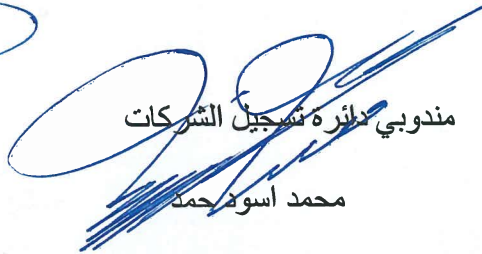 مندوبي دائرة تسجيل الشركات
محمد اسود حمد